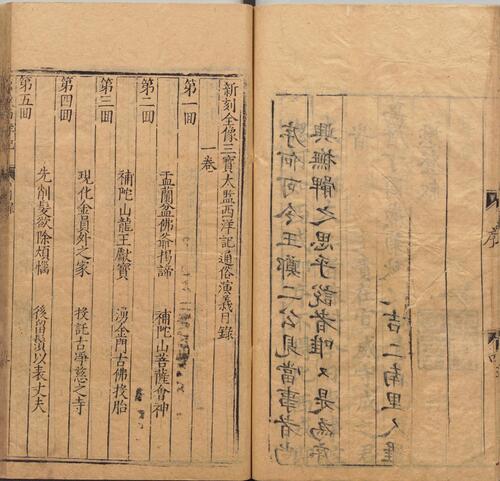 序何可令王鄭二公見當事者尚
興撫髀之思乎說者唯〻是為序
吉二南里人羅
新刻全像三寶太監西洋記通俗演義目錄
一卷
第一回
盂蘭盆佛爺揭諦　補陀山菩薩會神
第二回
補陀山龍王獻寶　湧金門古佛投胎
第三回
現化金員外之家　投託古淨慈之寺
第四回
先削髮欲除煩惱　後留鬚以表丈夫
第五回